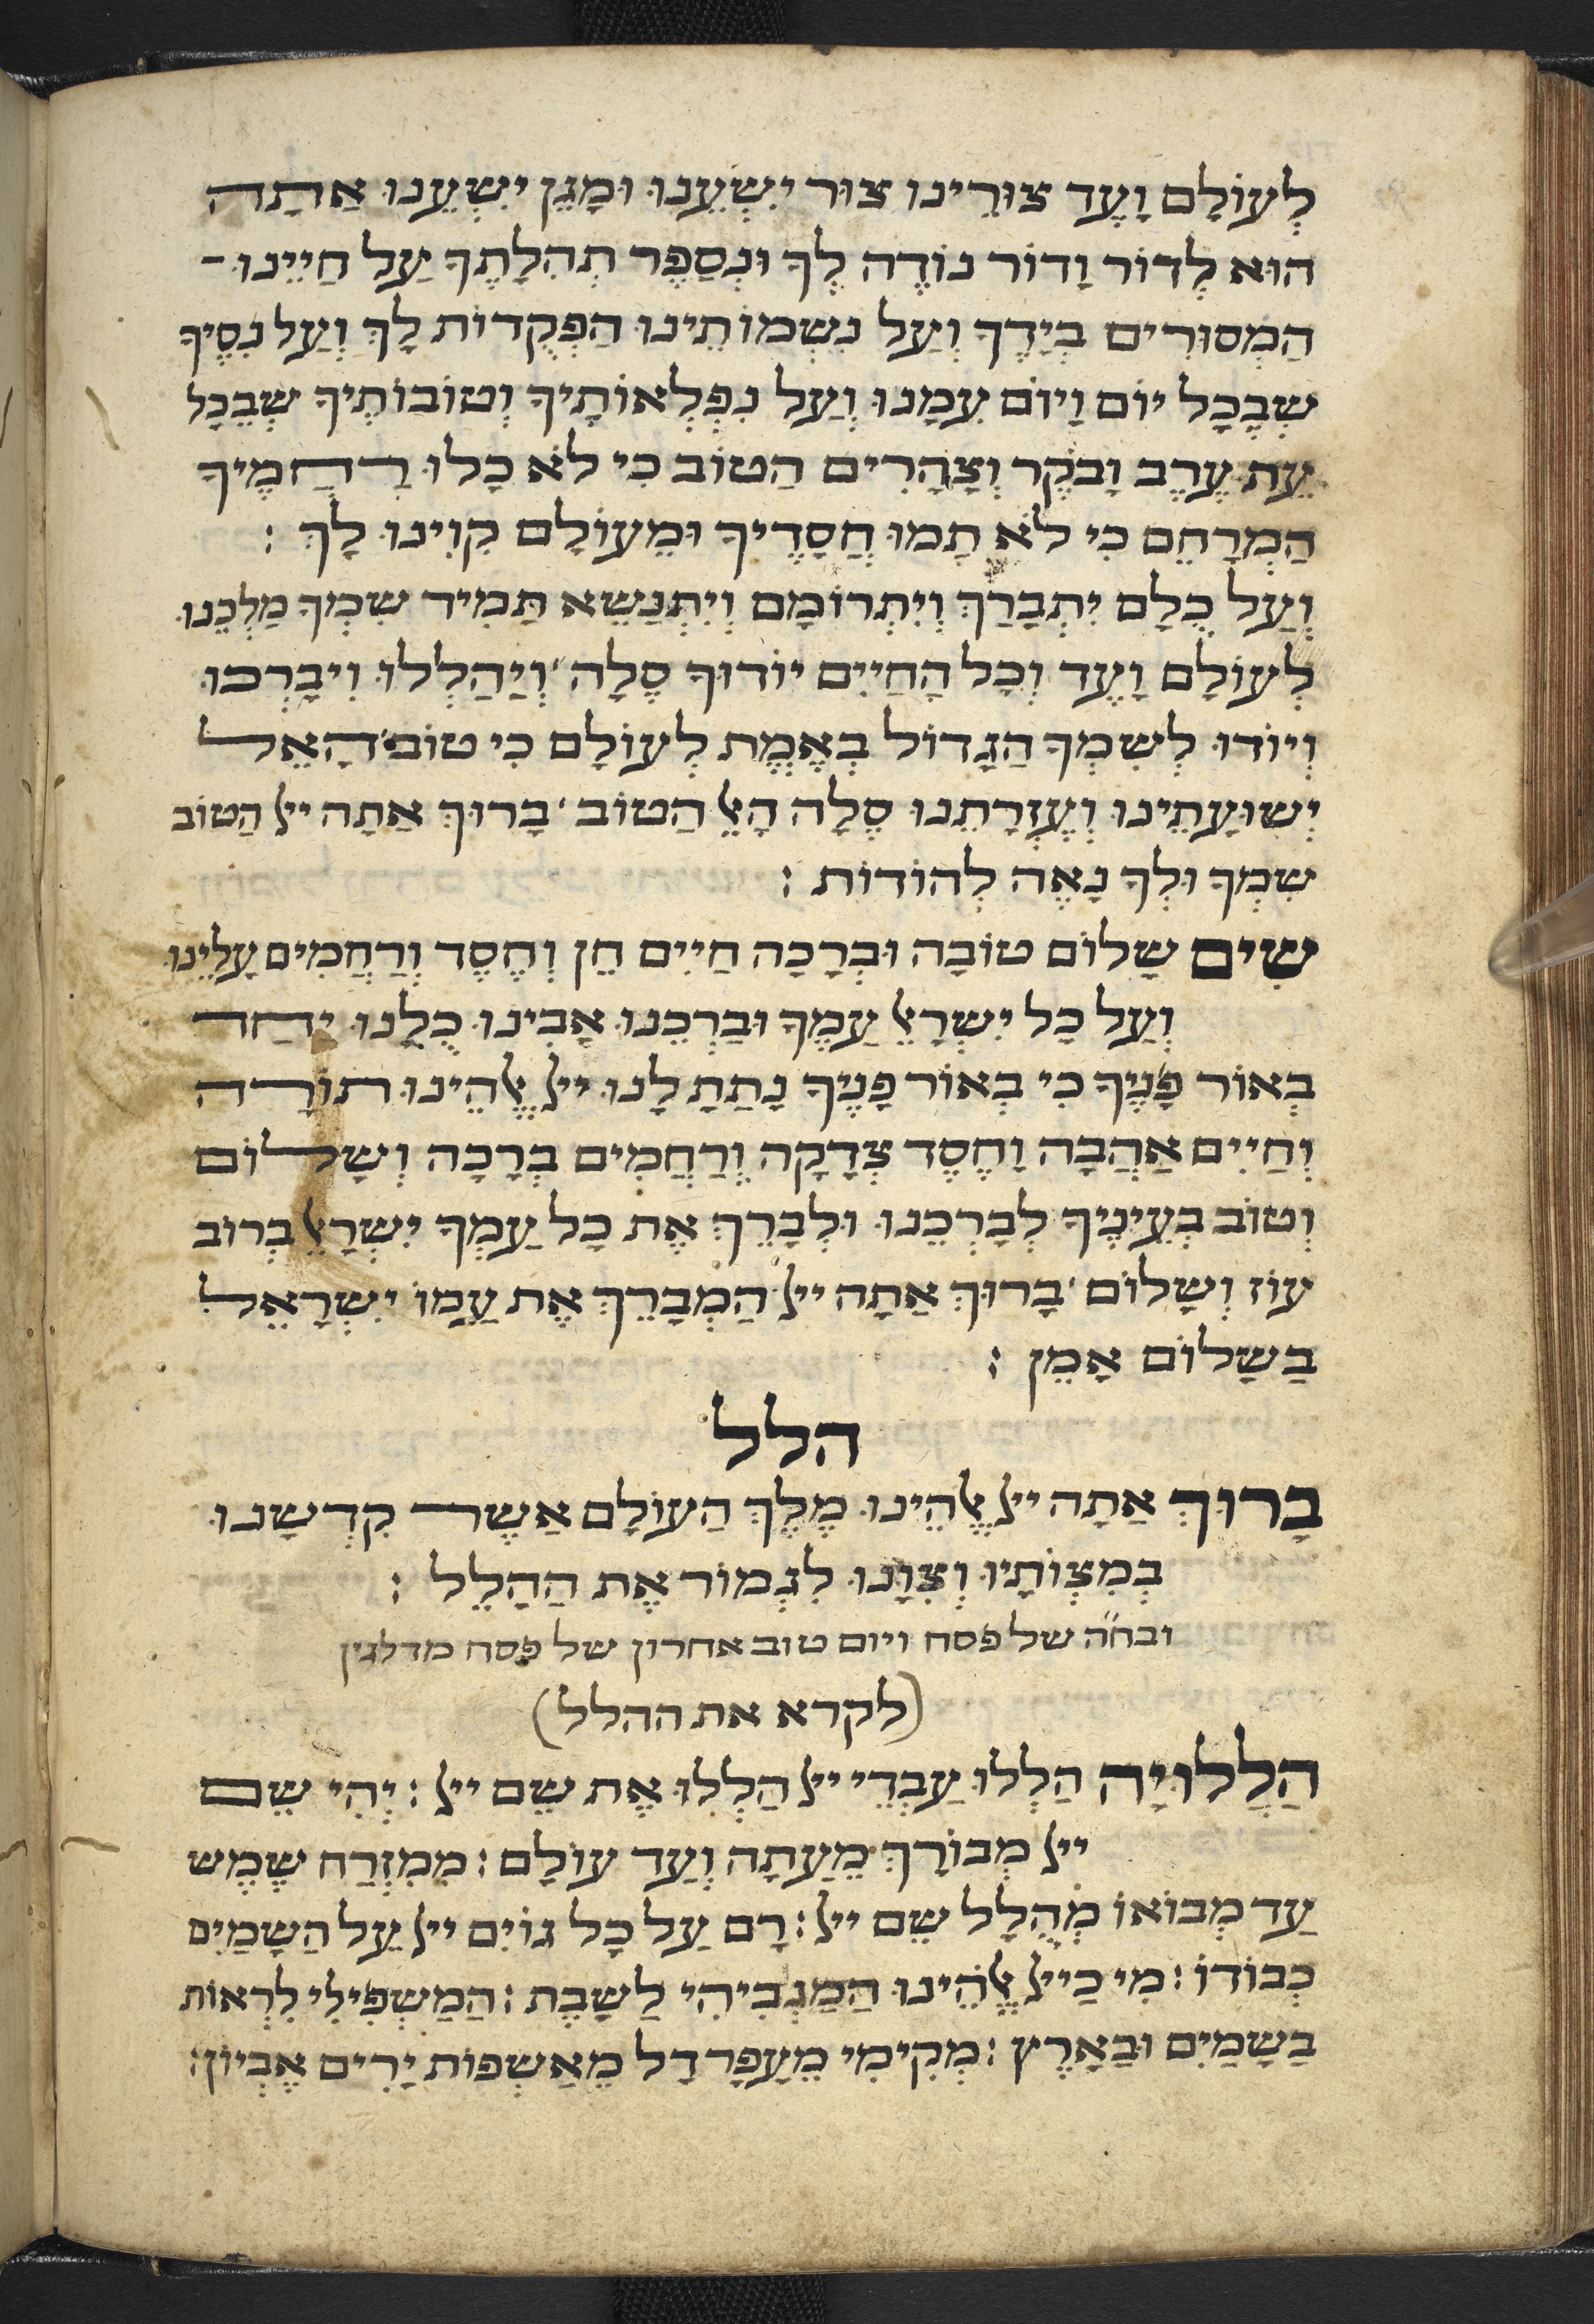 לְעוֹלָם וָעֶד צוּרֵינוּ צוּר יִשְׁעֵנוּ וּמָגֵן יִשְׁעֵנוּ אַתָה
הוּא לְדוֹר וָדוֹר נוֹדֶה לְךָ וּנְסַפֶּר תְהִלָתֶךָ עַל חַיֵינוּ -
הַמְסוּרִים בְיָדֶךָ וְעַל נִשְׁמוֹתֵינוּ הַפְּקֻדוֹת לָךְ וְעַל נִסֶיךָ
שֶׁבְּכָל יוֹם וָיוֹם עִמָנוּ וְעַל נִפְלְאוֹתֶיךָ וְטוֹבוֹתֶיךָ שֶׁבְּכָל
עֵת עֶרֶב וָבֹקֶר וְצָהֳרִים הַטוֹב כִי לֹא כָלוּ רַחֲמֶיךָ
הַמְרַחֵם כִי לֹא תַמוּ חֲסָדֶיךָ וּמֵעוֹלָם קִוִינוּ לָךְ :
וְעַל כֻלָם יִתְבָּרַךְ וְיִתְרוֹמָם וְיִתְנַשֵׂא תָּמִיד שִׁמְךָ מַלְכֵּנוּ
לְעוֹלָם וָעֶד וְכָל הַחַיִים יוֹדוּךָ סֶלָה ׳ וְיַהַלְלוּ וִיבָרְכוּ
וְיוֹדוּ לְשִׁמְךָ הַגָדוֹל בְּאֶמֶת לְעוֹלָם כִי טוֹב ׳ הָאֵל
יְשׁוּעָתֵינוּ וְעֶזְרָתֵנוּ סֶלָה הָאֵל הַטוֹב ׳ בָרוּךְ אַתָה ייָ הַטוֹב
שִׁמְךָ וּלְךָ נָאֶה לְהוֹדוֹת :
שִׂים שָׁלוֹם טוֹבָה וּבְרָכָה חַיִים חֵן וְחֶסֶד וְרַחֲמִים עָלֵינוּ
וְעַל כָל יִשְׂרָאֵל עַמֶךָ וּבַרְכֵנוּ אָבִינוּ כֻלָנוּ יַחַד
בְאוֹר פָּנֶיךָ כִי בְאוֹר פָנֶיךָ נָתַתָ לָנוּ ייָ אֱלֹהֵינוּ תוֹרָה
וְחַיִים אַהֲבָה וָחֶסֶד צְדָקָה וְרַחֲמִים בְרָכָה וְשָׁלוֹם
וְטוֹב בְעֵינֶיךָ לְבָרְכֵנוּ וּלְבָרֵךְ אֶת כָל עַמְךָ יִשְׂרָאֵל בְרוֹב
עוֹז וְשָׁלוֹם ׳ בָרוּךְ אַתָה ייָ הַמְבָרֵךְ אֶת עַמוֹ יִשְׂרָאֵל
בַשָׁלוֹם אָמֵן :
הלל
בָרוּךְ אַתָה ייָ אֱלֹהֵינוּ מֶלֶךְ הַעוֹלָם אֲשֶׁר קִדְשָׁנוּ
בְמִצְוֹתָיו וְצִוָנוּ לִגְמוֹר אֶת הַהָלֵל :
ובח״ה של פסח ויום טוב אחרון של פסח מדלגין
(לקרא את ההלל)
הַלֲלוּיָה הַלְלוּ עַבְדֵי ייָ הַלְלוּ אֶת שֵׁם ייָ : יְהִי שֵׁם
ייָ מְבוֹרָךְ מֵעַתָה וְעַד עוֹלָם : מִמִזְרַח שֶׁמֶשׁ
עַד מְבוֹאוֹ מְהֻלָל שֵׁם ייָ : רָם עַל כָל גוֹיִם ייָ עַל הַשָׁמַיִם
כְּבוֹדוֹ : מִי כַייָ אֱלֹהֵינוּ הַמַגְבִיהִי לַשָׁבֶת : הַמַשְׁפִּילִי לִרְאוֹת
בַשָׁמַיִם וּבָאָרֶץ : מְקִימִי מֵעָפָר דָל מֵאַשְׁפּוֹת יָרִים אֶבְיוֹן :